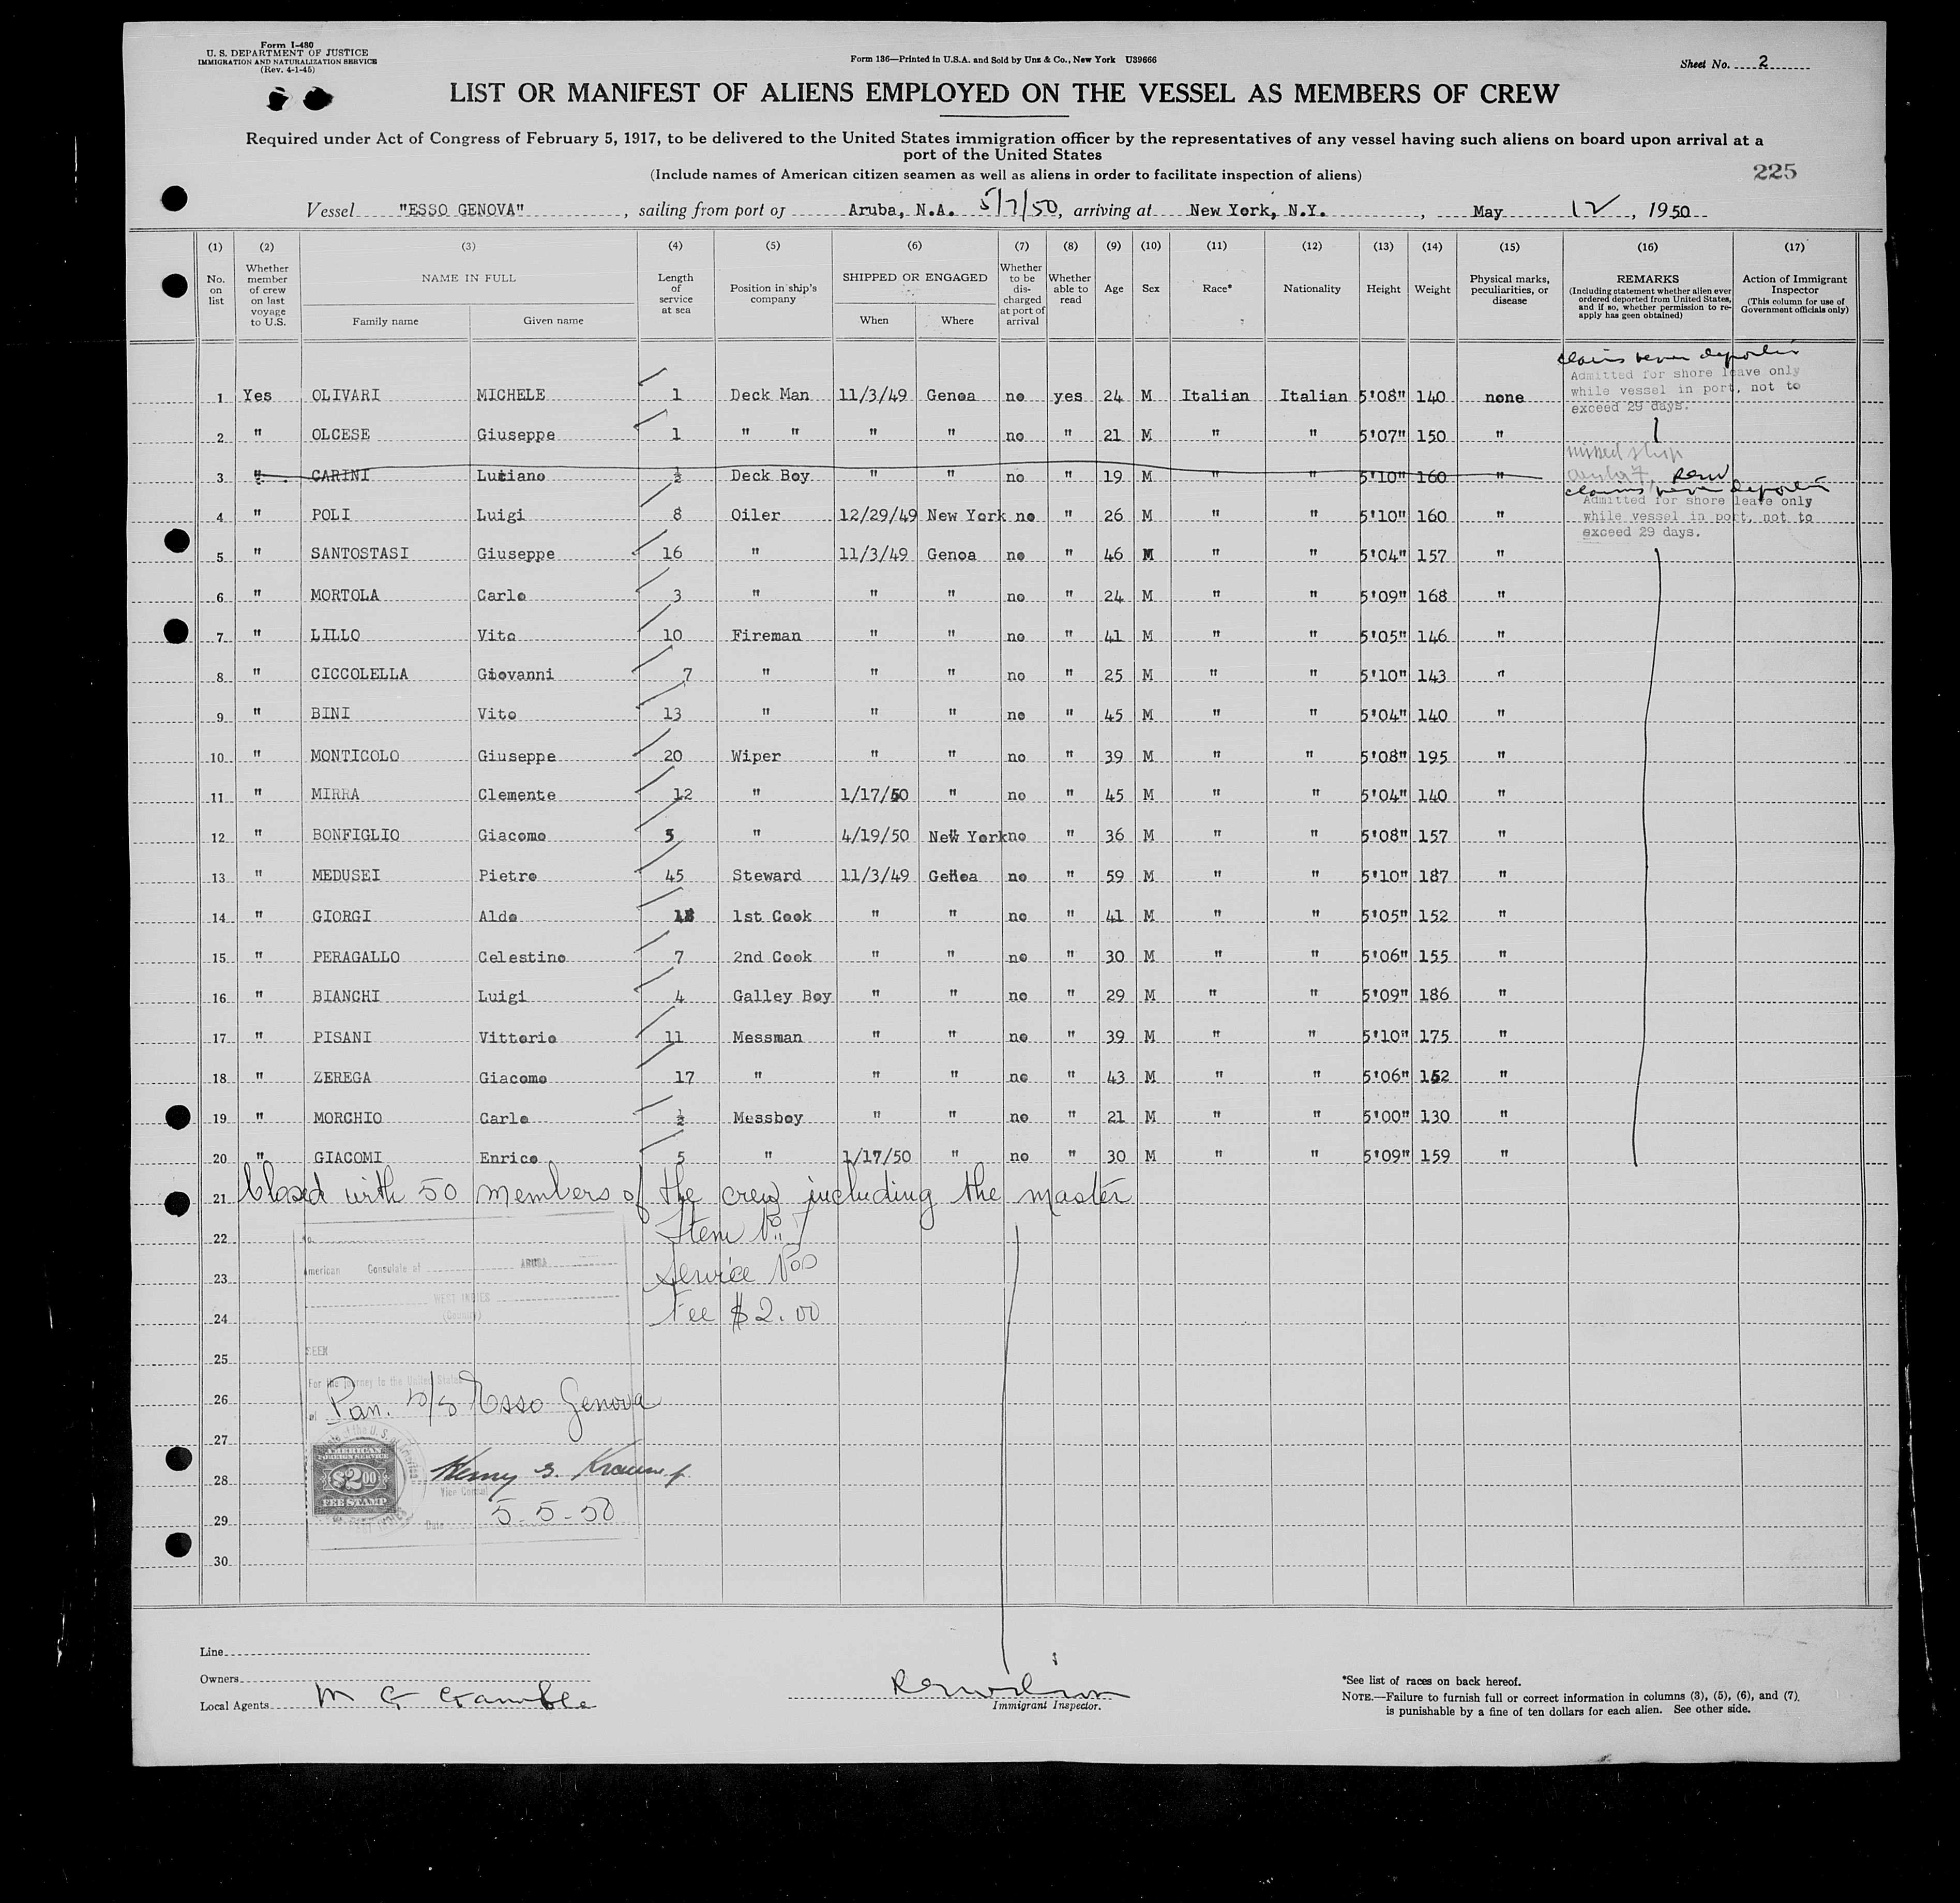 Form I-480
U. S. DEPARTMENT OF JUSTICE
IMMIGRATION AND NATURALIZATION SERVICE
(Rev. 4-1-45)
Form 136—Printed in U.S.A. and Sold by Unz & Co., New York U39666
Sheet No. 2
LIST OR MANIFEST OF ALIENS EMPLOYED ON THE VESSEL AS MEMBERS OF CREW
Required under Act of Congress of February 5, 1917, to be delivered to the United States immigration officer by the representatives of any vessel having such aliens on board upon arrival at a
port of the United States
(Include names of American citizen seamen as well as aliens in order to facilitate inspection of aliens)
225
Vessel "ESSO GENOVA", sailing from port of Aruba, N.A. 5/7/50, arriving at New York, N.Y., May 12, 1950
(1) (2) (3) (4) (5) (6) (7) (8) (9) (10) (11) (12) (13) (14) (15) (16) (17)
No. on list
Whether member of crew on last voyage to U.S.
NAME IN FULL
Family name
Given name
Length of service at sea
Position in ship's company
SHIPPED OR ENGAGED
When
Where
Whether to be discharged at port of arrival
Whether able to read
Age
Sex
Race*
Nationality
Height
Weight
Physical marks, peculiarities, or disease
REMARKS
(Including statement whether alien ever ordered deported from United States, and if so, whether permission to re-apply has geen obtained)
Action of Immigrant Inspector
(This column for use of Government officials only)
claims never deported
Admitted for shore leave only
while vessel in port, not to
exceed 29 days.
1 Yes OLIVARI MICHELE 1 Deck Man 11/3/49 Genoa no yes 24 M Italian Italian 5'08" 140 none
2 " OLCESE Giuseppe 1 " " " " no " 21 M " " 5'07" 150 "
missed ship
3 " CARINI Luciano ½ Deck Boy " " no " 19 M " " 5'10" 160 "
claims never deported
Admitted for shore leave only
while vessel in port, not to
exceed 29 days.
4 " POLI Luigi 8 Oiler 12/29/49 New York no " 26 M " " 5'10" 160 "
5 " SANTOSTASI Giuseppe 16 " 11/3/49 Genoa no " 46 M " " 5'04" 157 "
6 " MORTOLA Carlo 3 " " " no " 24 M " " 5'09" 168 "
7 " LILLO Vito 10 Fireman " " no " 41 M " " 5'05" 146 "
8 " CICCOLELLA Giovanni 7 " " " no " 25 M " " 5'10" 143 "
9 " BINI Vito 13 " " " no " 45 M " " 5'04" 140 "
10 " MONTICOLO Giuseppe 20 Wiper " " no " 39 M " " 5'08" 195 "
11 " MIRRA Clemente 12 " 1/17/50 " no " 45 M " " 5'04" 140 "
12 " BONFIGLIO Giacomo 5 " 4/19/50 New York no " 36 M " " 5'08" 157 "
13 " MEDUSEI Pietro 45 Steward 11/3/49 Genoa no " 59 M " " 5'10" 187 "
14 " GIORGI Aldo 1st Cook " " no " 41 M " " 5'05" 152 "
15 " PERAGALLO Celestino 7 2nd Cook " " no " 30 M " " 5'06" 155 "
16 " BIANCHI Luigi 4 Galley Boy " " no " 29 M " " 5'09" 186 "
17 " PISANI Vittorio 11 Messman " " no " 39 M " " 5'10" 175 "
18 " ZEREGA Giacomo 17 " " " no " 43 M " " 5'06" 152 "
19 " MORCHIO Carlo ½ Messboy " " no " 21 M " " 5'00" 130 "
20 " GIACOMI Enrico 5 " 1/17/50 " no " 30 M " " 5'09" 159 "
21 Closed with 50 members of the crew including the master
22 No. Item No. 7
23 American Consulate at ARUBA Service No.
WEST INDIES
(Country)
24 Fee $2.00
25 SEEN
For the journey to the United States
26 Pan. S/S Esso Genova
27
AMERICAN
FOREIGN SERVICE
28 $2.00
FEE STAMP
Vice Consul
29 Date 5-5-50
30
Line
Owners
Local Agents M G Gamble
Immigrant Inspector.
*See list of races on back hereof.
NOTE.—Failure to furnish full or correct information in columns (3), (5), (6), and (7)
is punishable by a fine of ten dollars for each alien. See other side.